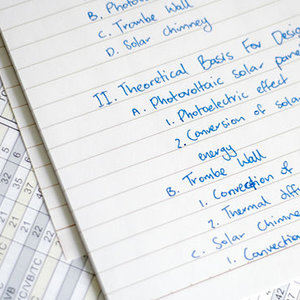 B. Photo
C. Trombe Wall
D. Solar chimney
II. Theoretical Basis For Desig
A. Photovoltaic solar pane
1. Photoelectric effect
2. Conversion of solar
energy
B. Trombe Wall
1. Convection of
2. Thermal diff
C. Solar Chimne
1. Convection